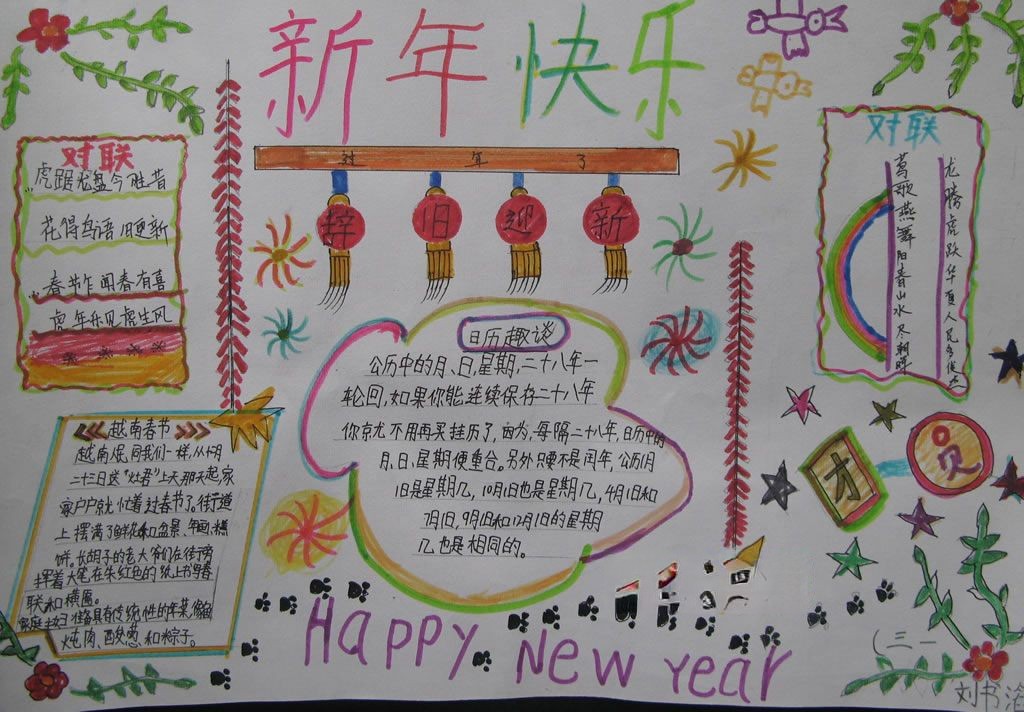 新年快乐
过年了
辞旧迎新
对联
虎踞龙盘今胜昔
花得鸟语旧更新
春节乍闻春有喜
虎年乐见虎生风
对联
龙腾虎跃华夏人民多俊杰
莺歌燕舞阳春山水尽朝晖
日历趣谈
公历中的月、日、星期,二十八年一
轮回,如果你能连续保存二十八年
你就不用再买挂历了,因为,每隔二十八年,日历中的
月、日、星期便重合。另外只要不是闰年,公历1月
1日是星期几,10月1日也是星期几,4月1日和
7月1日,9月1日和12月1日的星期
几也是相同的。
越南春节
越南人民同我们一样,从12月
二十三日送“灶君”上天那天起,家
家户户就忙着过春节了。街道
上摆满了鲜花和盆景、年画、糕
饼。长胡子的老大爷们在街旁
挥着大笔在朱红色的纸上书写春
联和横匾。
家庭妇女准备具有传统性的年菜,像
炖肉、酸葱和粽子。
才
贝
Happy New Year
(三一
刘书涵